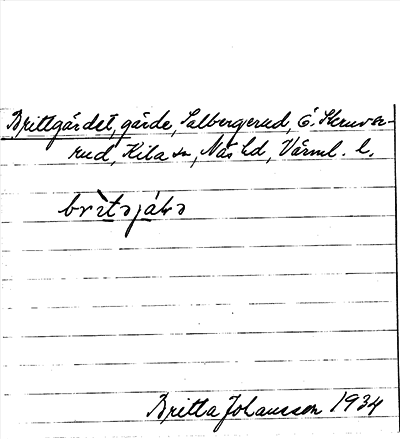 Brittgärdet, gärde, Salbergerud, Ö. Skruver-
rud, Kila sn, Näs hd, Värml. l.
Britta Johansson 1934